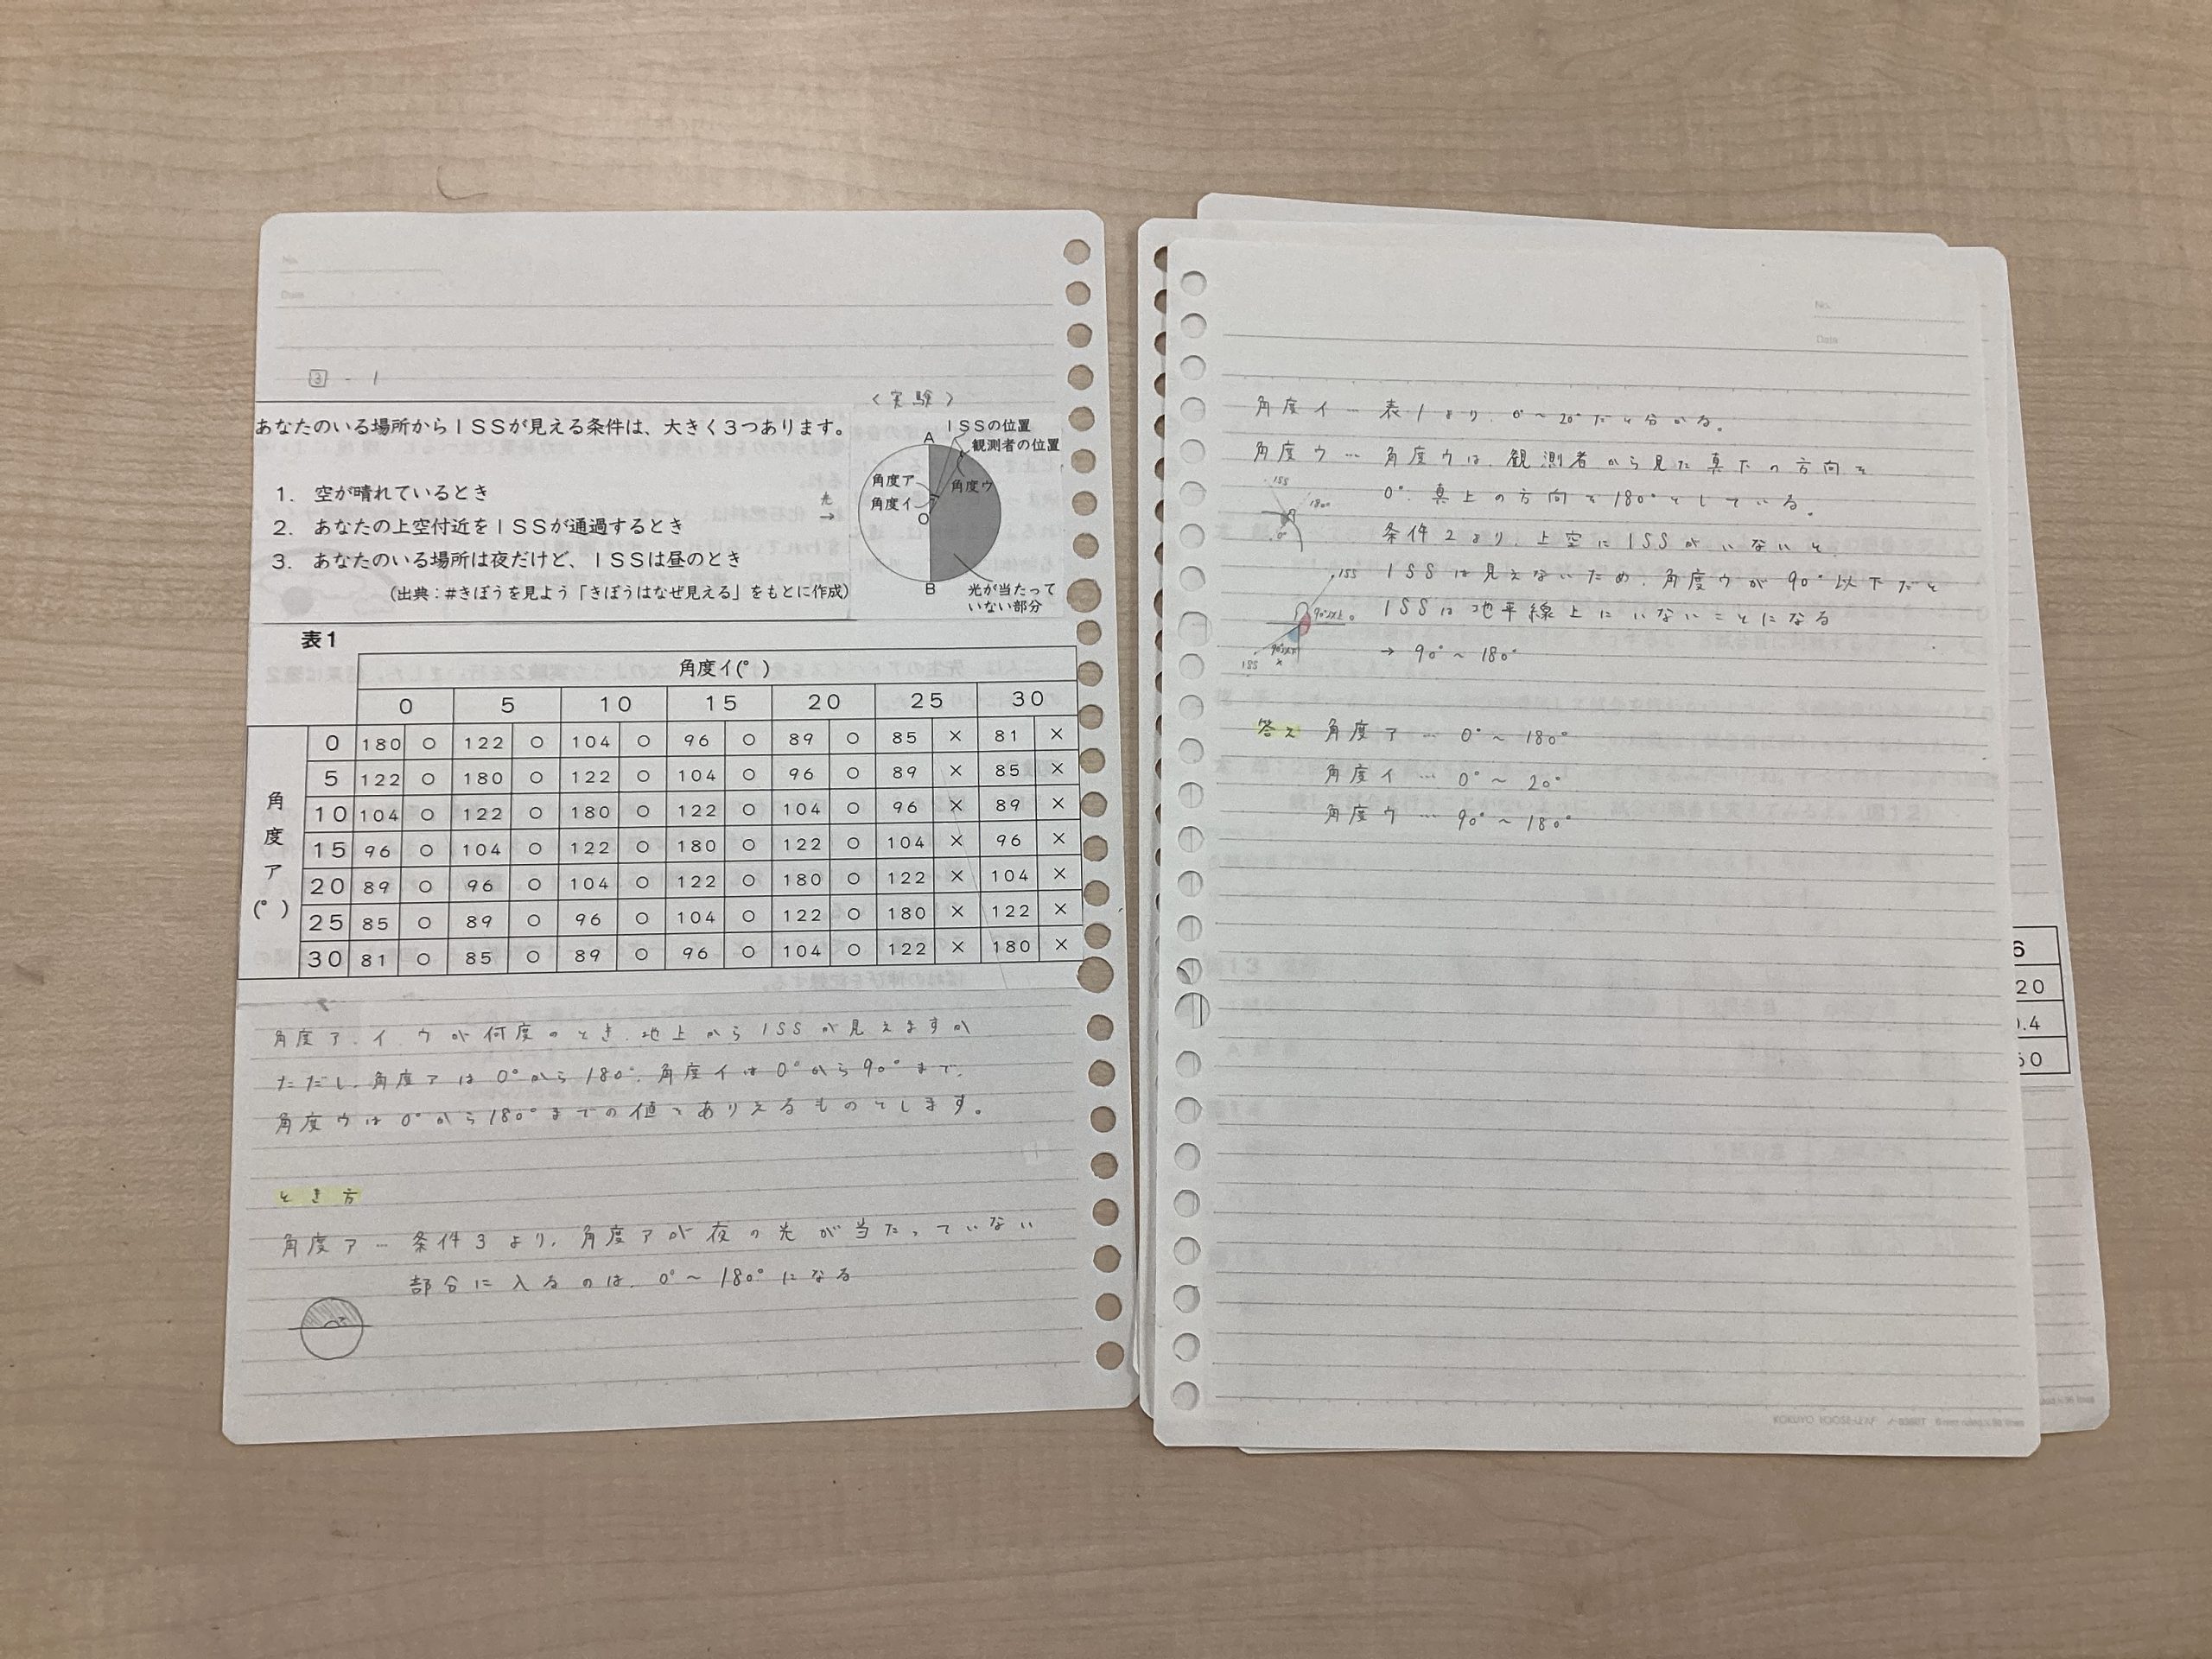 No.
Date
3 - 1
〈実験〉
あなたのいる場所からISSが見える条件は、大きく3つあります。
1. 空が晴れているとき
2. あなたの上空付近をISSが通過するとき
3. あなたのいる場所は夜だけど、ISSは昼のとき
(出典:#きぼうを見よう「きぼうはなぜ見える」をもとに作成)
A
ISSの位置
観測者の位置
角度ア
角度イ
角度ウ
光
→
O
B
光が当たって
いない部分
表1
角度イ(°)
0 5 10 15 20 25 30
角度ア(°)
0 180 ○ 122 ○ 104 ○ 96 ○ 89 ○ 85 × 81 ×
5 122 ○ 180 ○ 122 ○ 104 ○ 96 ○ 89 × 85 ×
10 104 ○ 122 ○ 180 ○ 122 ○ 104 ○ 96 × 89 ×
15 96 ○ 104 ○ 122 ○ 180 ○ 122 ○ 104 × 96 ×
20 89 ○ 96 ○ 104 ○ 122 ○ 180 ○ 122 × 104 ×
25 85 ○ 89 ○ 96 ○ 104 ○ 122 ○ 180 × 122 ×
30 81 ○ 85 ○ 89 ○ 96 ○ 104 ○ 122 × 180 ×
角度ア、イ、ウが何度のとき、地上からISSが見えますか
ただし、角度アは0°から180°、角度イは0°から90°まで、
角度ウは0°から180°までの値をありえるものとします。
とき方
角度ア… 条件3より、角度アが夜の光が当たっていない
部分に入るのは、0°~180°になる
No.
Date
角度イ… 表1より、0°~20°だと分かる。
角度ウ… 角度ウは、観測者から見た真下の方向を
0°、真上の方向を180°としている。
条件2より、上空にISSがいないと、
ISSは見えないため、角度ウが90°以下だと
ISSは地平線上にいないことになる
→ 90°~180°
ISS
180°
0°
ISS
90°以上 ○
90°以下
×
ISS
答え 角度ア … 0°~180°
角度イ … 0°~20°
角度ウ … 90°~180°
6
20
.4
50